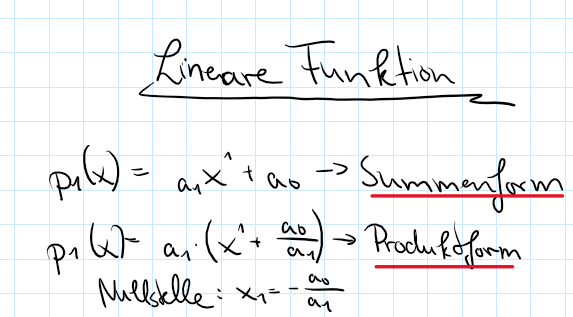 Lineare Funktion
p₁(x) = a₁x¹ + a₀ → Summenform
p₁(x) = a₁·(x¹ + a₀/a₁) → Produktform
Nullstelle: x₁ = -a₀/a₁